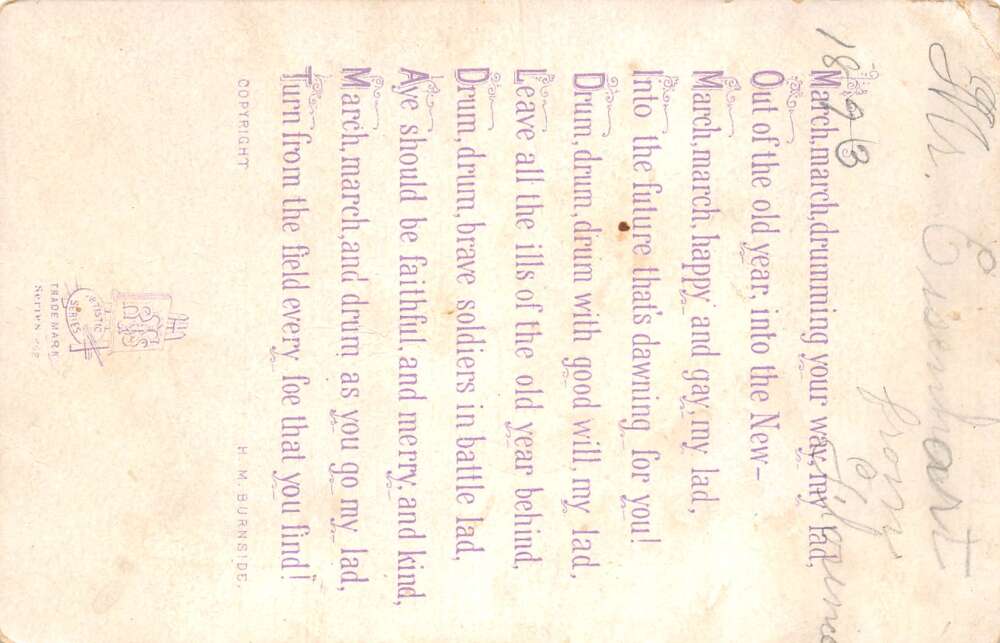 Mr. Eisenhart
from
1893
March, march, drumming your way, my lad,
Out of the old year, into the New—
March, march, happy and gay, my lad,
Into the future that's dawning for you!
Drum, drum, drum with good will, my lad,
Leave all the ills of the old year behind,
Drum, drum, brave soldiers in battle lad,
Aye should be faithful, and merry, and kind,
March, march, and drum as you go my lad,
Turn from the field every foe that you find!
COPYRIGHT H. M. BURNSIDE.
ARTISTIC
SERIES
TRADE MARK
SERIES